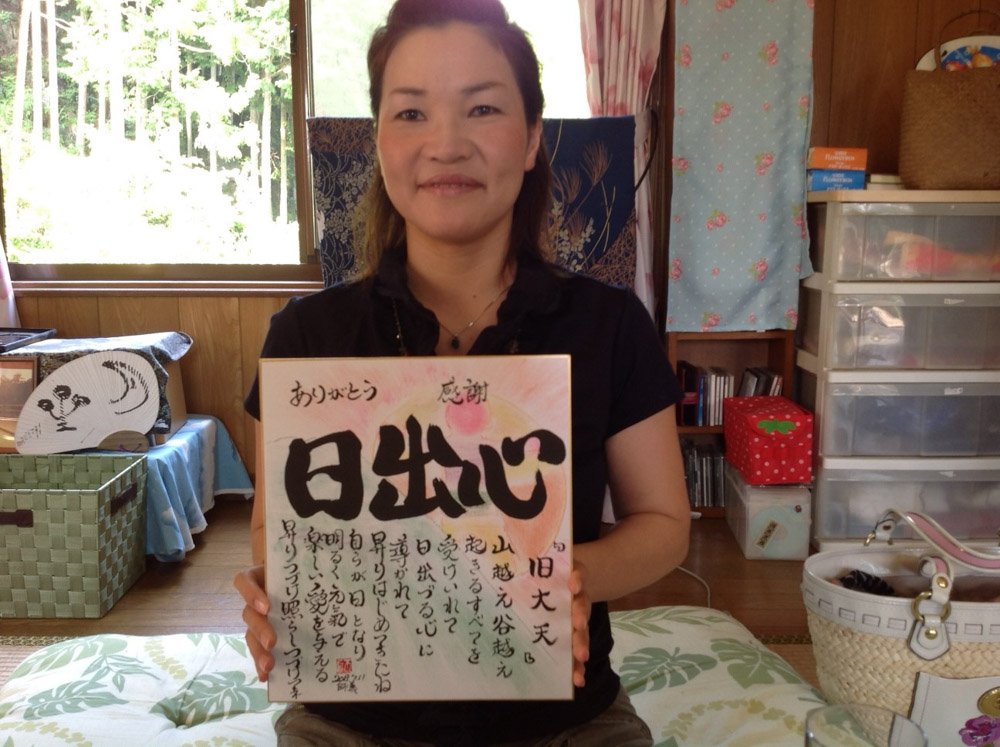 ありがとう 感謝
日出心
「旧大天」
山越え谷越え
起きるすべてを
受けいれて
日出づる心に
導かれて
昇りはじめて
自らが日となり
明るく元氣で
楽しい愛を与える
昇りつづけ照らしつづけ